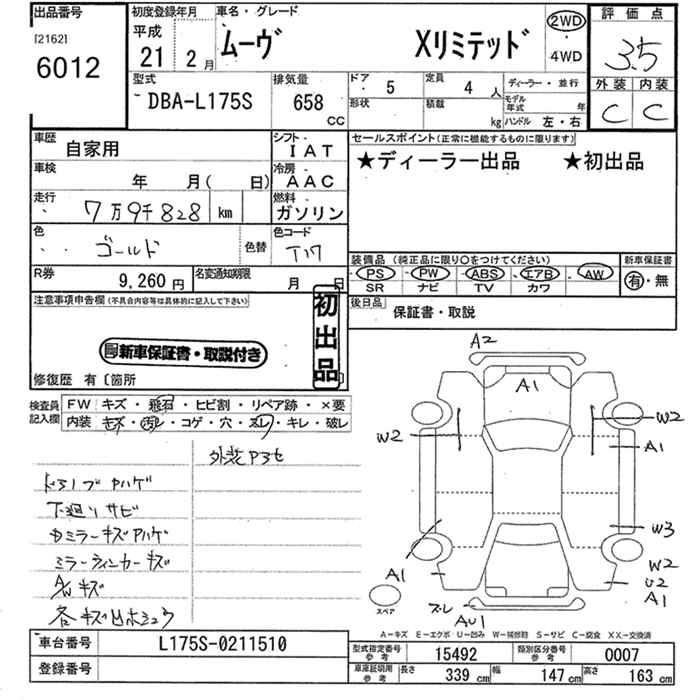 出品番号 初度登録年月 車名・グレード 評価点
[2162] 平成 ムーヴ Xリミテッド 2WD 3.5
6012 21 2月 4WD
外装 内装
型式 排気量 ドア・ 5 定員 4人 ディーラー・並行
DBA-L175S 658 CC 形状 積載 kg モデル年式 年 C C
ハンドル 左・右
車歴 自家用 シフト IAT セールスポイント(正常に機能するものに限ります)
★ディーラー出品 ★初出品
車検 年 月( 日) 冷房 AAC
走行 7万9千828 km 燃料 ガソリン
色 ゴールド 色替 色コード T17
装備品(純正品に限り○をつけてください) 新車保証書
PS PW ABS エアB AW 有・無
SR ナビ TV カワ
R券 9,260円 名変通知期限 月 日
後日品 保証書・取説
注意事項申告欄(不具合内容等は具体的に記入して下さい)
初出品
新車保証書・取説付き
修復歴 有〔箇所
検査員記入欄 FW キズ・飛石・ヒビ割・リペア跡・×要
内装 キズ・汚レ・コゲ・穴・ズレ・キレ・破レ
外装P3モ
下廻リサビ
ミラーウィンカーキズ
A/Wキズ
A2
A1
W2 W2
A1
W3
A1 W2
U2
A1
スペア ズレ AU1
A－キズ E－エクボ U－凹み W－補修跡 S－サビ C－腐食 XX－交換済
車台番号 L175S-0211510
型式指定番号 参考 15492 類別区分番号 参考 0007
登録番号
車庫証明用 参考 長さ 339 cm 幅 147 cm 高さ 163 cm